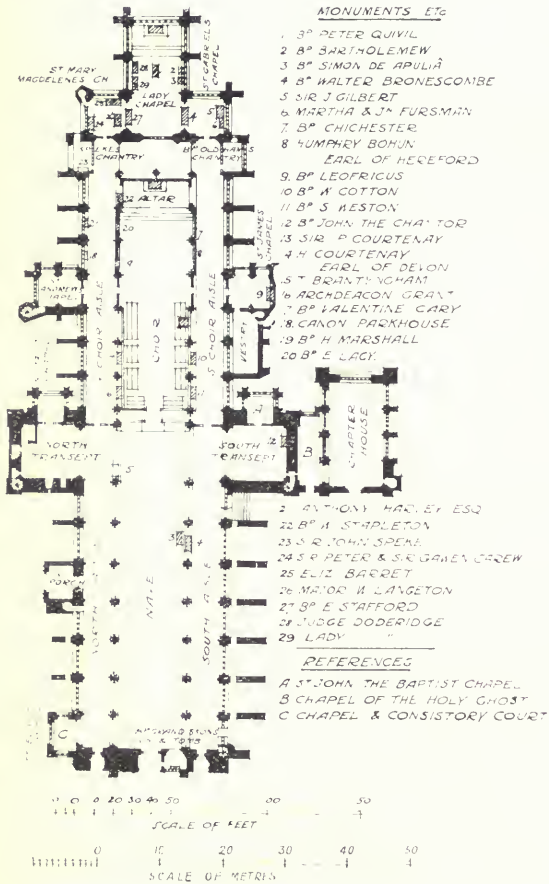 MONUMENTS ETC
1 BP PETER QUIVIL
2 BP BARTHOLEMEW
3 BP SIMON DE APULIA
4 BP WALTER BRONESCOMBE
5 SIR J GILBERT
6. MARTHA & JN FURSMAN
7. BP CHICHESTER
8 HUMPHRY BOHUN
EARL OF HEREFORD
9. BP LEOFRICUS
10 BP W COTTON
11 BP S WESTON
12 BP JOHN THE
13 SIR P COURTENAY
4 H COURTENAY
EARL OF DEVON
5 T BRANTINGHAM
16 ARCHDEACON GRANT
7 BP VALENTINE CARY
18. CANON PARKHOUSE
19 BP H MARSHALL
20 BP E LACY.
2 ANTHONY HARLEY ESQ
22 BP W STAPLETON
23 SIR JOHN SPEKE
24 SR PETER & SR GAWEN CAREW
25 ELIZ BARRET
26 MAJOR W LANGETON
27 BP E STAFFORD
28 JUDGE DODERIDGE
29 LADY "
REFERENCES
A ST JOHN THE BAPTIST CHAPEL
B CHAPEL OF THE HOLY GHOST
C CHAPEL & CONSISTORY COURT
ST GABRELS
CHAPEL
ST MARY
MAGDELENES CH
LADY
CHAPEL
CHANTRY
BP OLDHAMS
CHANTRY
ALTAR
ST JAMES
CHAPEL
CHOIR AISLE
CHOIR
S CHOIR AISLE
VESTRY
NORTH
TRANSEPT
SOUTH
TRANSEPT
A
B
CHAPTER
HOUSE
PORCH
NORTH
NAVE
SOUTH AISLE
C
& TOMB
0 20 30 40 50
SCALE OF FEET
0 10 20 30 40 50
SCALE OF METRES